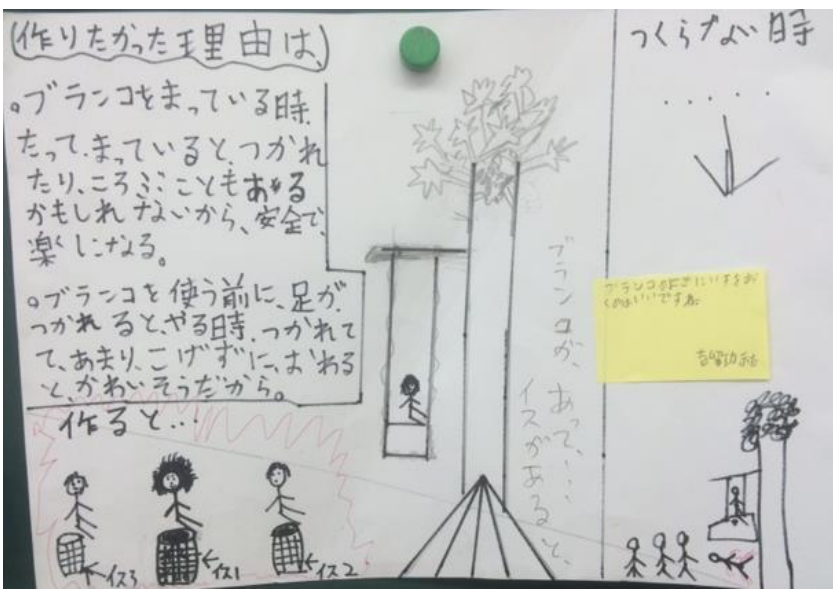 (作りたかった理由は、)
。ブランコをまっている時、
たって、まっていると、つかれ
たり、ころぶこともある
かもしれないから、安全で、
楽しくなる。
。ブランコを使う前に、足が、
つかれると、やる時、つかれて
て、あまり、こげずに、おわる
と、かわいそうだから。
作ると…!
イス3
イス1
イス2
ブランコが、あって、……
イスがあると、
つくらない時
・・・・・
ブランコの
いいですね